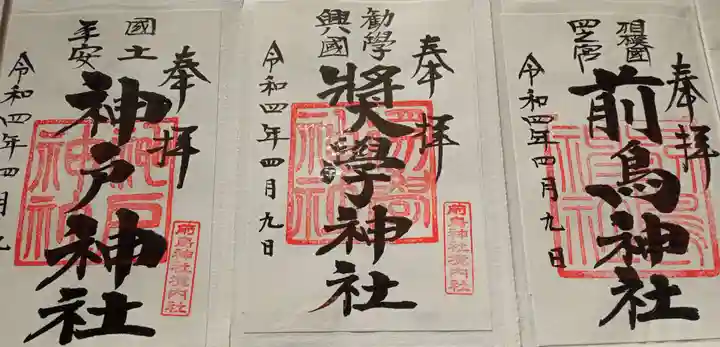 奉拝
相模國
四之宮
前鳥神社
令和四年四月九日
奉拝
勸學
興國
奨學神社
令和四年四月九日
前鳥神社境内社
奉拝
國土
平安
神戸神社
令和四年四月九
前鳥神社境内社